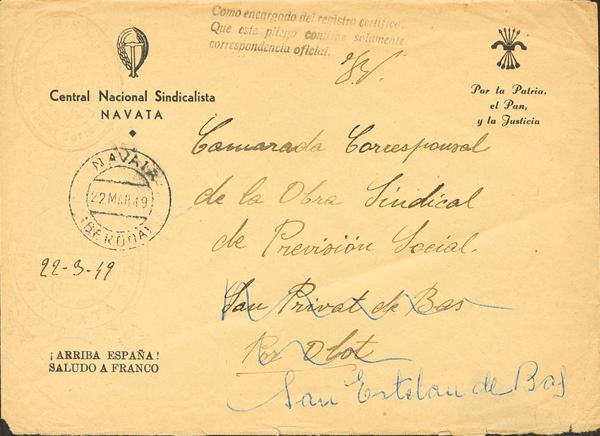 Como encargado del registro certifico.
Que este pliego contiene solamente
correspondencia oficial.
Central Nacional Sindicalista
NAVATA
Por la Patria,
el Pan,
y la Justicia
NAVATA
22 MAR 49
(GERONA)
22-3-49
Camarada Corresponsal
de la Obra Sindical
de Previsión Social.
San Privat de Bas
Por Olot
San Esteban de Bas
¡ARRIBA ESPAÑA!
SALUDO A FRANCO